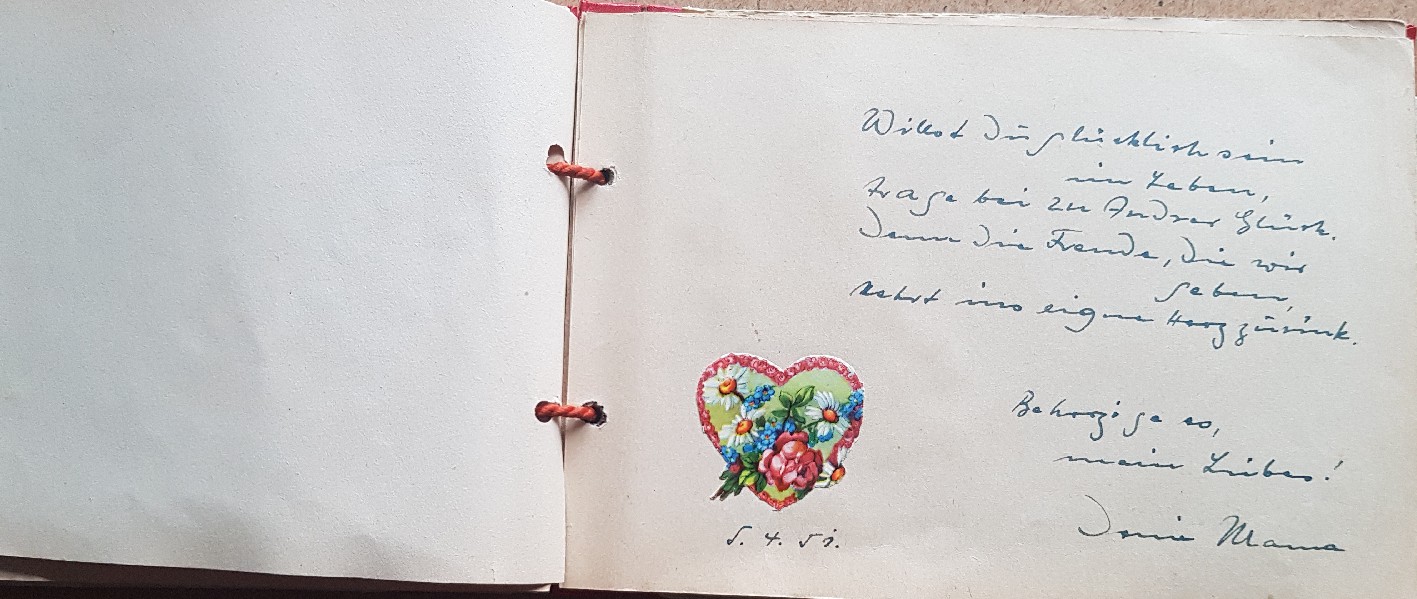 Willst Du glücklich sein
im Leben,
trage bei zu Andrer Glück.
Denn die Freude, die wir
geben,
kehrt ins eigne Herz zurück.
Beherzige es,
mein Liebes!
Deine Mama
5. 4. 51.